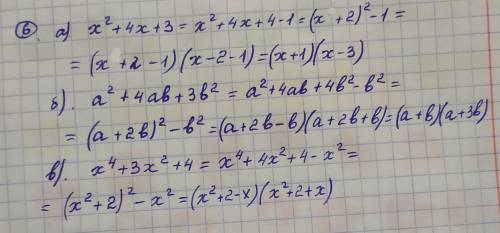 ⑥ а) x² + 4x + 3 = x² + 4x + 4 - 1 = (x + 2)² - 1 =
= (x + 2 - 1)(x - 2 - 1) = (x + 1)(x - 3)
б). a² + 4ab + 3b² = a² + 4ab + 4b² - b² =
= (a + 2b)² - b² = (a + 2b - b)(a + 2b + b) = (a + b)(a + 3b)
в). x⁴ + 3x² + 4 = x⁴ + 4x² + 4 - x² =
= (x² + 2)² - x² = (x² + 2 - x)(x² + 2 + x)